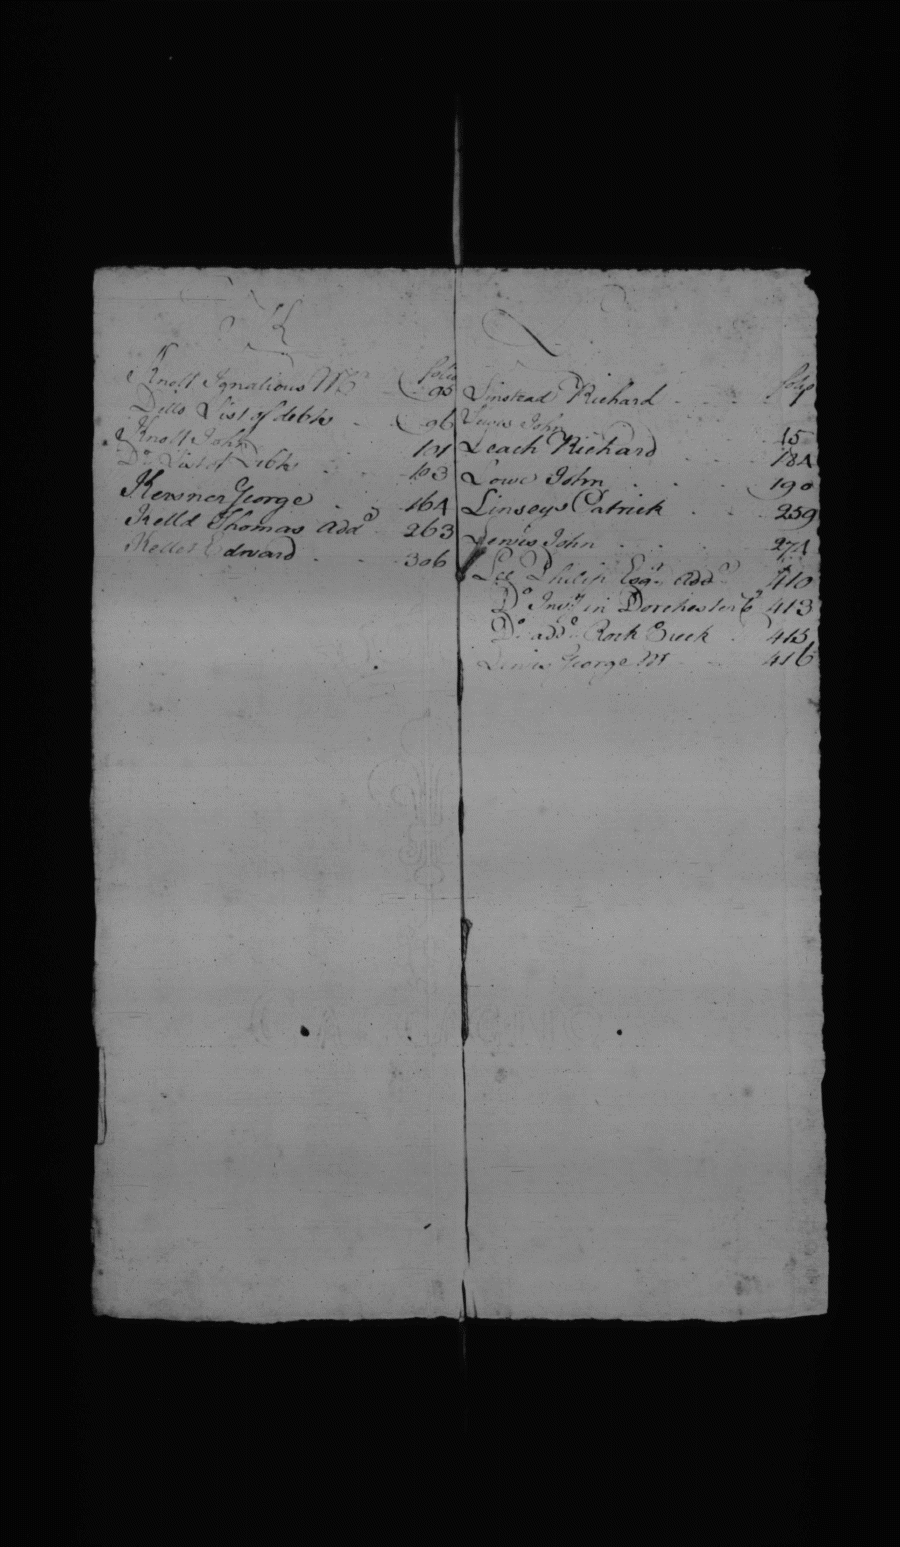 K
folio
Knott Ignatious 95
Ditto List of debts 96
Knott John 101
Do List of Debts 103
Kersner George 164
Kelld Thomas addo 263
Keller Edward 306
L
folio
Linstead Richard 1
Lewis John 15
Leach Richard 184
Lowe John 190
Linseys Patrick 259
Lewis John 274
Lee Philip Esqr addo 410
Do Invy in Dorchester Co 413
Do addo Rock Creek 415
Lewis George 416